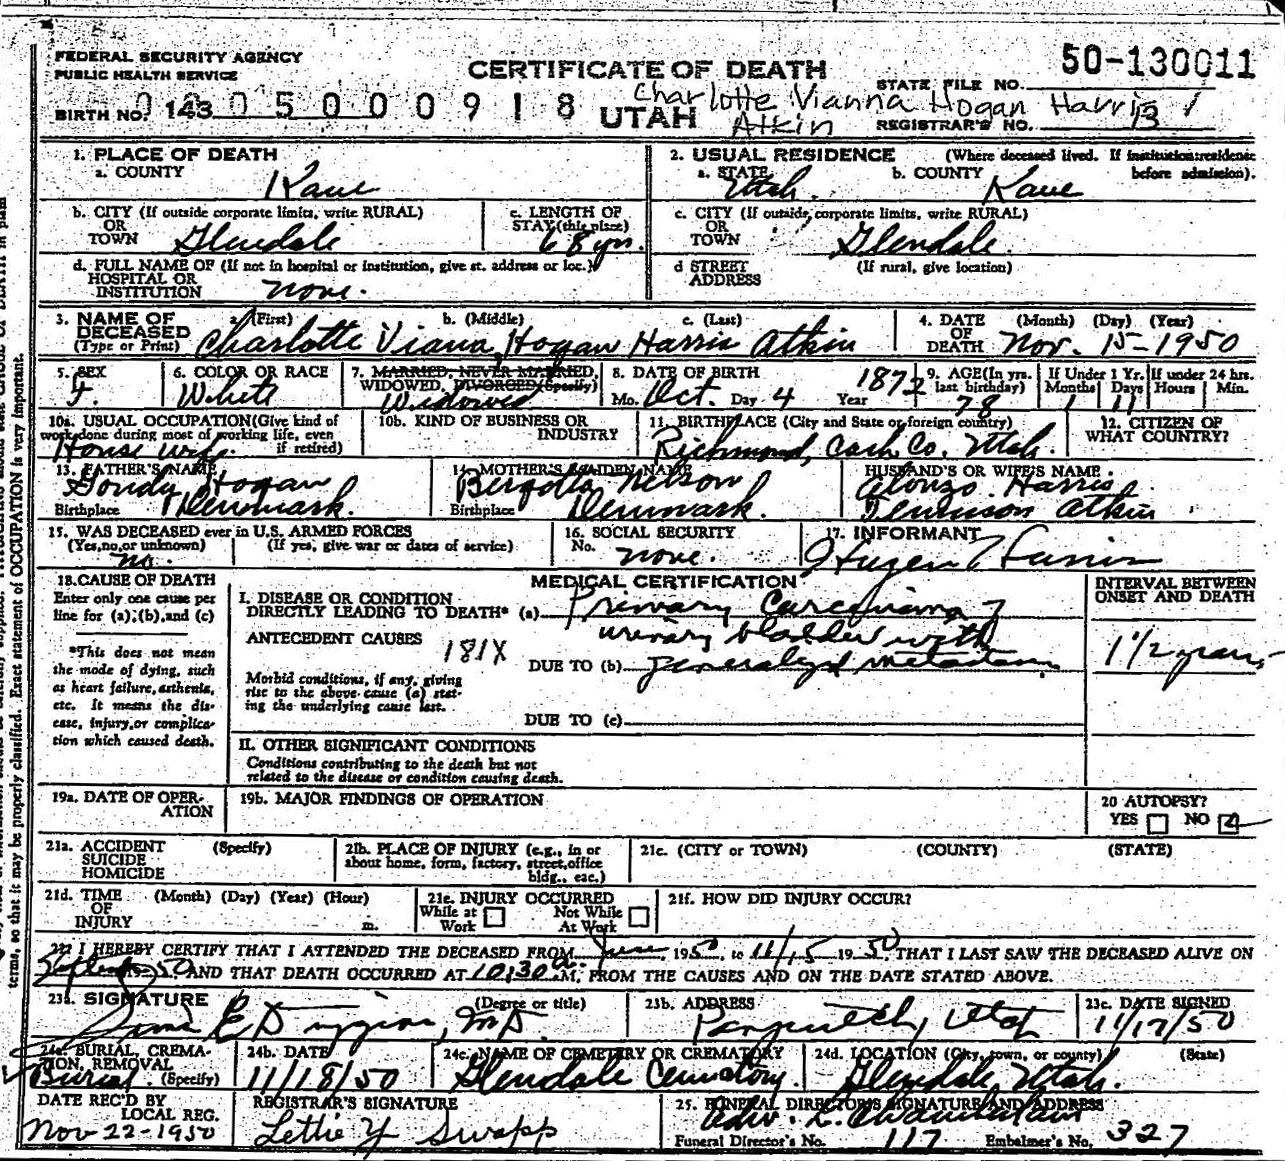 FEDERAL SECURITY AGENCY
PUBLIC HEALTH SERVICE
CERTIFICATE OF DEATH
50-130011
STATE FILE NO.
BIRTH NO. 143 0 5 0 0 0 9 1 8 UTAH
Charlotte Vianna Hogan Harris
Atkin
REGISTRAR'S NO. 13
1. PLACE OF DEATH
a. COUNTY Kane
2. USUAL RESIDENCE (Where deceased lived. If institution: residence before admission).
a. STATE Utah. b. COUNTY Kane
b. CITY (If outside corporate limits, write RURAL)
OR
TOWN Glendale
c. LENGTH OF
STAY (this place)
68 yrs.
c. CITY (If outside corporate limits, write RURAL)
OR
TOWN Glendale.
d. FULL NAME OF (If not in hospital or institution, give st. address or loc.)
HOSPITAL OR
INSTITUTION none.
d STREET (If rural, give location)
ADDRESS
3. NAME OF DECEASED (Type or Print)
a. (First) b. (Middle) c. (Last)
Charlotte Viana Hogan Harris Atkin
4. DATE OF DEATH (Month) (Day) (Year)
Nov. 15-1950
5. SEX
F.
6. COLOR OR RACE
White
7. MARRIED, NEVER MARRIED,
WIDOWED, DIVORCED (Specify)
Widowed
8. DATE OF BIRTH
Mo. Oct. Day 4 Year 1872
9. AGE (In yrs. last birthday)
78
If Under 1 Yr. Months Days
1 11
If under 24 hrs. Hours Min.
10a. USUAL OCCUPATION (Give kind of
work done during most of working life, even
if retired)
House wife.
10b. KIND OF BUSINESS OR
INDUSTRY
11. BIRTHPLACE (City and State or foreign country)
Richmond, Cash Co. Utah.
12. CITIZEN OF
WHAT COUNTRY?
13. FATHER'S NAME
Hogan
Birthplace Denmark.
14. MOTHER'S MAIDEN NAME
Nelson
Birthplace Denmark.
HUSBAND'S OR WIFE'S NAME
Alonzo Harris
Atkin
15. WAS DECEASED ever in U.S. ARMED FORCES
(Yes, no, or unknown) (If yes, give war or dates of service)
no.
16. SOCIAL SECURITY
No. none.
17. INFORMANT
18. CAUSE OF DEATH
Enter only one cause per
line for (a), (b), and (c)
*This does not mean
the mode of dying, such
as heart failure, asthenia,
etc. It means the dis-
ease, injury, or complica-
tion which caused death.
MEDICAL CERTIFICATION
I. DISEASE OR CONDITION
DIRECTLY LEADING TO DEATH* (a) Primary Carcinoma of
urinary bladder with
ANTECEDENT CAUSES 181X
DUE TO (b) generalized metastases
Morbid conditions, if any, giving
rise to the above cause (a) stat-
ing the underlying cause last.
DUE TO (c)
INTERVAL BETWEEN
ONSET AND DEATH
1 1/2 years
II. OTHER SIGNIFICANT CONDITIONS
Conditions contributing to the death but not
related to the disease or condition causing death.
19a. DATE OF OPER-
ATION
19b. MAJOR FINDINGS OF OPERATION
20 AUTOPSY?
YES NO
21a. ACCIDENT (Specify)
SUICIDE
HOMICIDE
21b. PLACE OF INJURY (e.g., in or
about home, form, factory, street, office
bldg., eac.)
21c. (CITY or TOWN) (COUNTY) (STATE)
21d. TIME (Month) (Day) (Year) (Hour)
OF
INJURY m.
21e. INJURY OCCURRED
While at Work Not While At Work
21f. HOW DID INJURY OCCUR?
22 I HEREBY CERTIFY THAT I ATTENDED THE DECEASED FROM June, 1950, to 11/15 1950, THAT I LAST SAW THE DECEASED ALIVE ON
50 AND THAT DEATH OCCURRED AT 10:30 a. M, FROM THE CAUSES AND ON THE DATE STATED ABOVE.
23a. SIGNATURE (Degree or title)
M.D.
23b. ADDRESS
Panguitch, Utah
23c. DATE SIGNED
11/17/50
24a. BURIAL, CREMA-
TION, REMOVAL
Burial (Specify)
24b. DATE
11/18/50
24c. NAME OF CEMETERY OR CREMATORY
Glendale Cemetery.
24d. LOCATION (City, town, or county) (State)
Glendale, Utah.
DATE REC'D BY
LOCAL REG.
Nov 22-1950
REGISTRAR'S SIGNATURE
Lettie Y Swapp
25. FUNERAL DIRECTOR'S SIGNATURE AND ADDRESS
L. Chamberlain
Funeral Director's No. 117 Embalmer's No. 327
terms, so that it may be properly classified. Exact statement of OCCUPATION is very important.